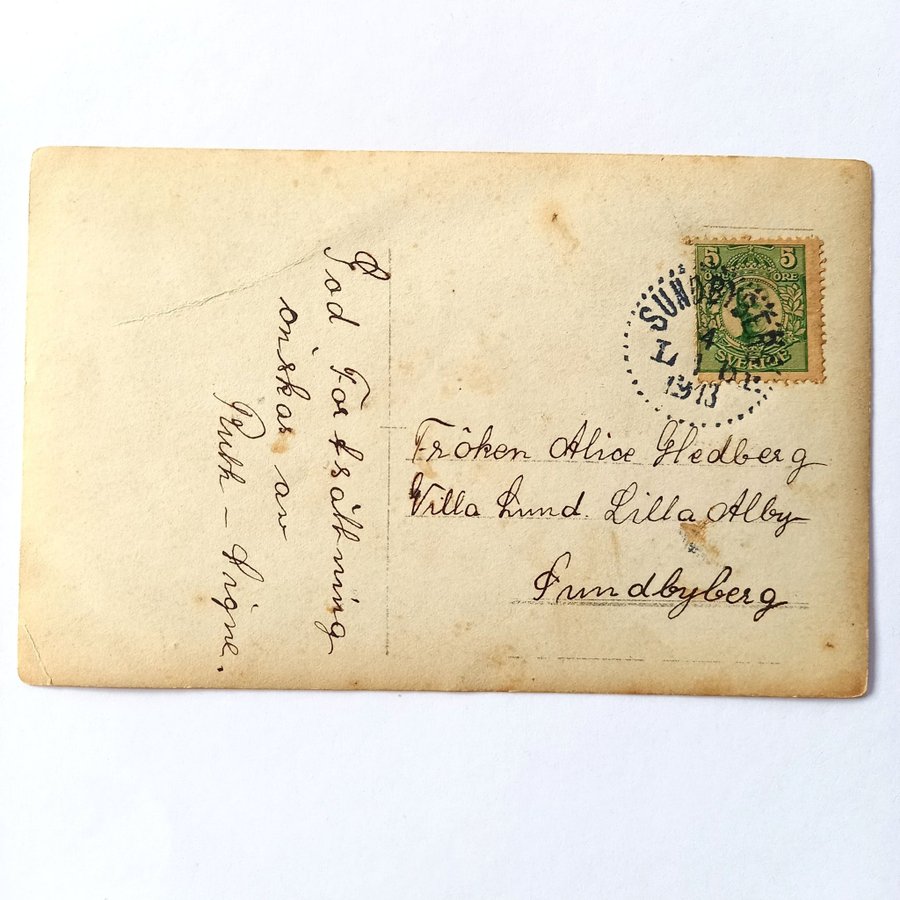 God Fortsättning
önskas av
Ruth – Signe.
5 5
ÖRE ÖRE
SVERIGE
SUNDBYBERG
4
1
1913
Fröken Alice Hedberg
Villa Lund. Lilla Alby
Sundbyberg